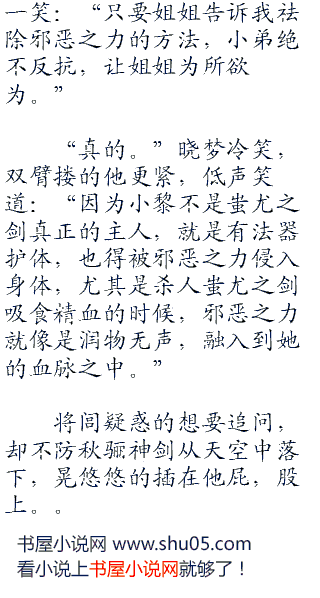 一笑：“只要姐姐告诉我祛
除邪恶之力的方法，小弟绝
不反抗，让姐姐为所欲
为。”
“真的。”晓梦冷笑，
双臂搂的他更紧，低声笑
道：“因为小黎不是蚩尤之
剑真正的主人，就是有法器
护体，也得被邪恶之力侵入
身体，尤其是杀人蚩尤之剑
吸食精血的时候，邪恶之力
就像是润物无声，融入到她
的血脉之中。”
将闾疑惑的想要追问，
却不防秋骊神剑从天空中落
下，晃悠悠的插在他屁，股
上。。
书屋小说网 www.shu05.com
看小说上书屋小说网就够了！